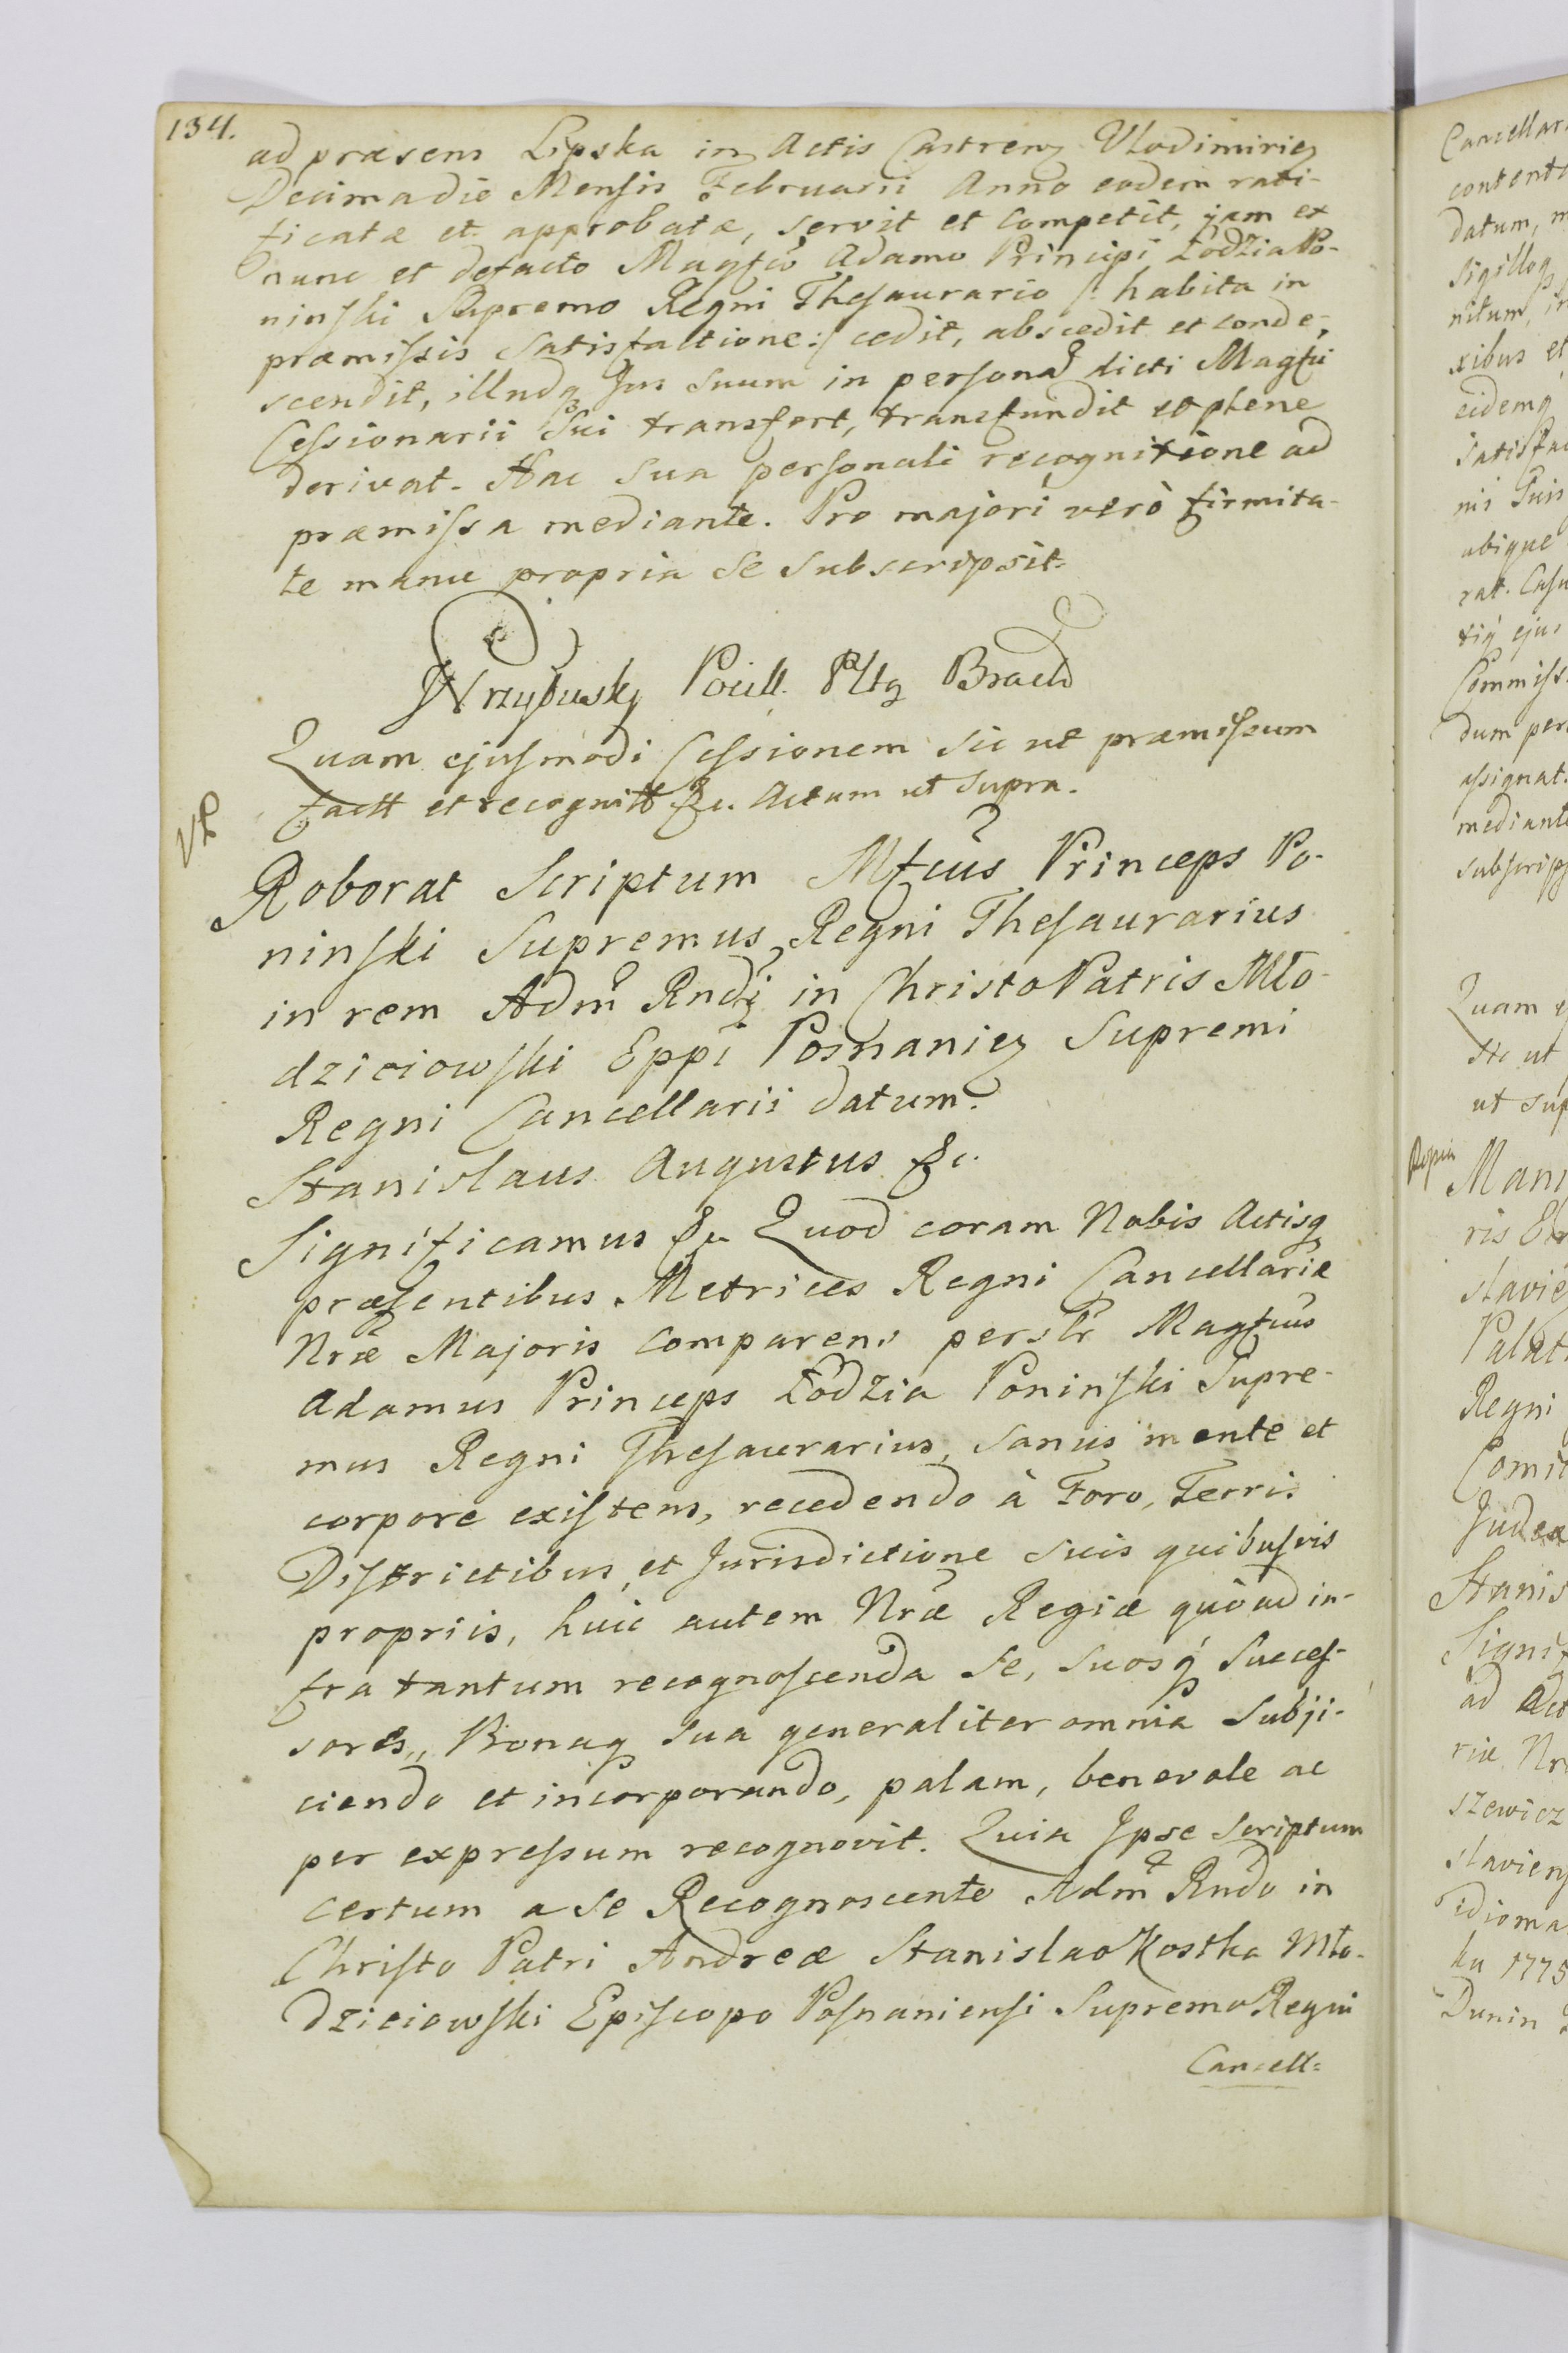 134.
ad præsens Lipska in Actis Castren Vlodimirien
Decima die Mensis Februarii Anno eodem rati-
ficatæ et approbatæ, servit et competit, jam ex
nunc et defacto Magfco Adamo Principi Łodzia Po-
ninski Supremo Regni Thesaurario /: habita in
præmissis satisfactione :/ cedit, abscedit et conde-
scendit, illudq Jus suum in personam dicti Magfci
Cessionarii Sui transfert, transfundit et plene
derivat. Hac sua personali recognitione ad
præmissa mediante. Pro majori verò firmita-
te manu propria se subscripsit.
Pocill. Brach
Quam ejusmodi Cessionem sic ut præmissum
factt et recognitt &c. Actum ut supra.
Roborat Scriptum Mfcus Princeps Po-
ninski Supremus Regni Thesaurarius
in rem Adm Rndi in Christo Patris Mło-
dzieiowski Eppi Posnanien Supremi
Regni Cancellarii datum.
Stanislaus Augustus &c.
Significamus &c. Quod coram Nobis Actisq
præsentibus Metrices Regni Cancellariæ
Nræ Majoris comparens perslr Magfcus
Adamus Princeps Łodzia Poninski Supre-
mus Regni Thesaurarius, sanus mente et
corpore existens, recedendo à Foro, Terris
Districtibus et Jurisdictione suis quibusvis
propriis, huic autem Nræ Regiæ quò ad in-
fra tantum recognoscenda se, suosq Succes-
sores, Bonaq sua generaliter omnia subji-
ciendo et incorporando, palam, benevole ac
per expressum recognovit. Quia Ipse scriptum
certum a se Recognoscente Adm Rndo in
Christo Patri Andreæ Stanislao Kostka Mło-
dzieiowski Episcopo Posnaniensi Supremo Regni
Cancell=
Cancellar
contenta
datum,
sigilloq
nitum,
xibus et
eidemq
satisfac
nis
ubique
rat. Casu
ejus
Commiss
dum per
assignat.
mediante
subscrip
Quam
ut
ut sup
Copia
ris
Palat
Regni
Comit
Judex
Stanis
Signif
ad Act
riæ Nr
szewicz
slavien
idioma
ku 1775
Dunin